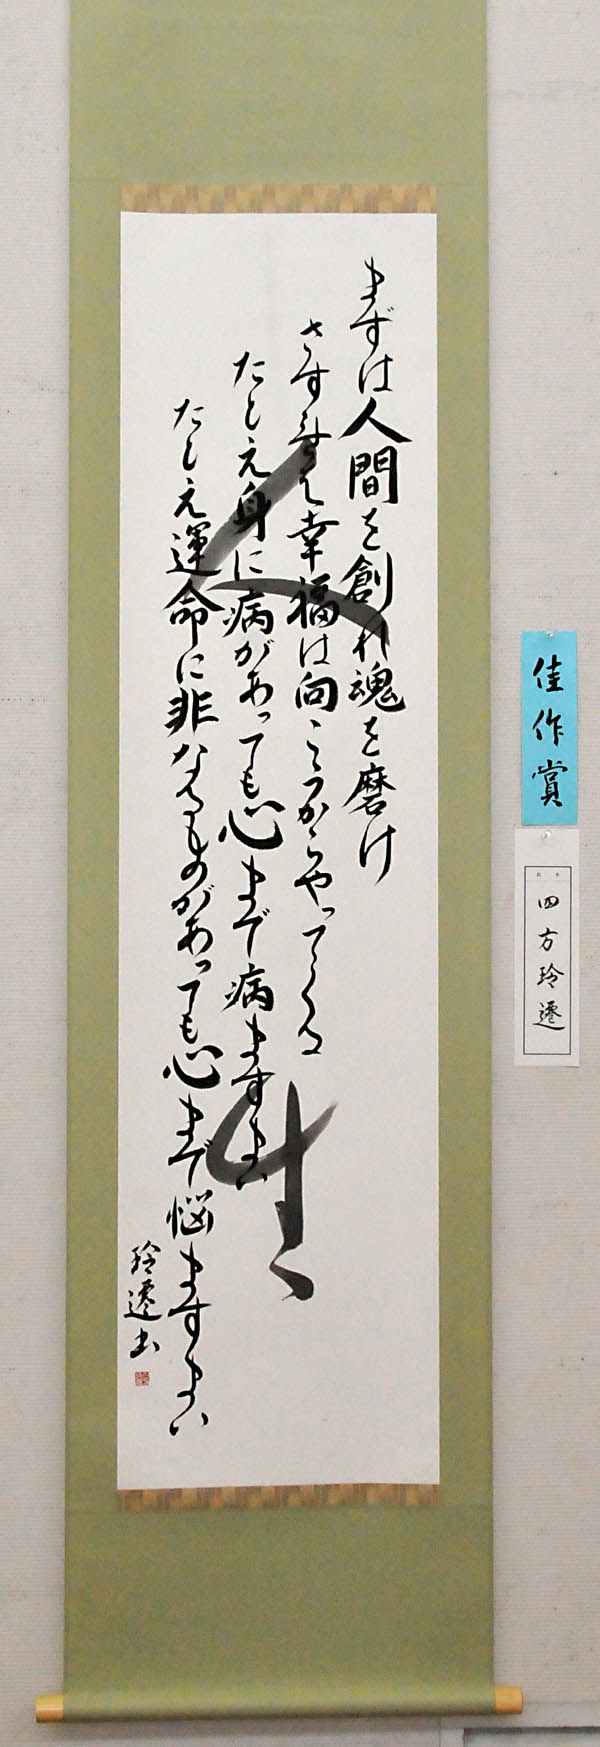 まずは人間を創れ魂を磨け
さすれば幸福は向こうからやってくる
たとえ身に病があっても心まで病ますまい
たとえ運命に非なるものがあっても心まで悩ますまい
玲遷書
人生
佳作賞
四方玲遷